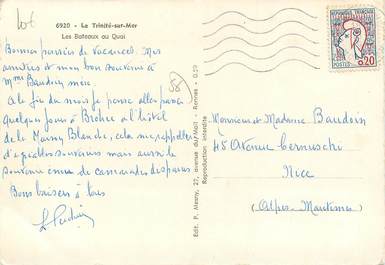 6920 - La Trinité-sur-Mer
Les Bateaux au Quai
Bonnes pensées de vacances. Mes
amitiés et mon bon souvenir à
Mme Baudoin mère.
A la fin du mois je pense aller passer
quelques jours à Bréhec à l'hôtel
de la Marny Blanche, cela me rappellera
d'agréables souvenirs mais aussi le
souvenir ému de camarades disparus
Bons baisers à tous
58
Edit. P. Mesny, 27, avenue du Mail - Rennes - 0.29
Reproduction interdite
POSTES
0,20
Monsieur et Madame Baudoin
45 Avenue Cernuschi
Nice
(Alpes-Maritimes)